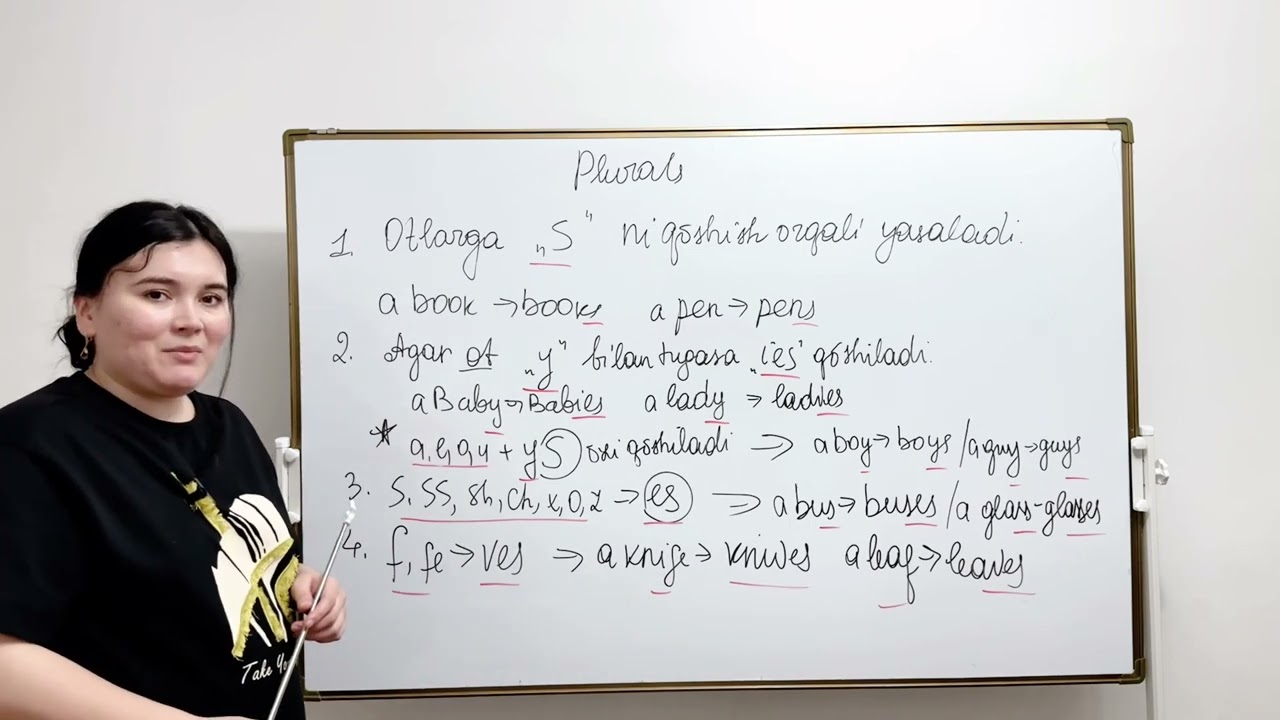 Plurals
1. Otlarga „S“ ni qo'shish orqali yasaladi.
a book → books a pen → pens
2. Agar ot „y“ bilan tugasa „ies“ qo'shiladi.
a Baby → Babies a lady → ladies
* a, e, o, u + y S o'zi qo'shiladi ⇒ a boy → boys / a guy → guys
3. S, SS, Sh, Ch, x, O, z → es ⇒ a bus → buses / a glass - glasses
4. f, fe → ves ⇒ a knife → knives a leaf → leaves
Take Yo